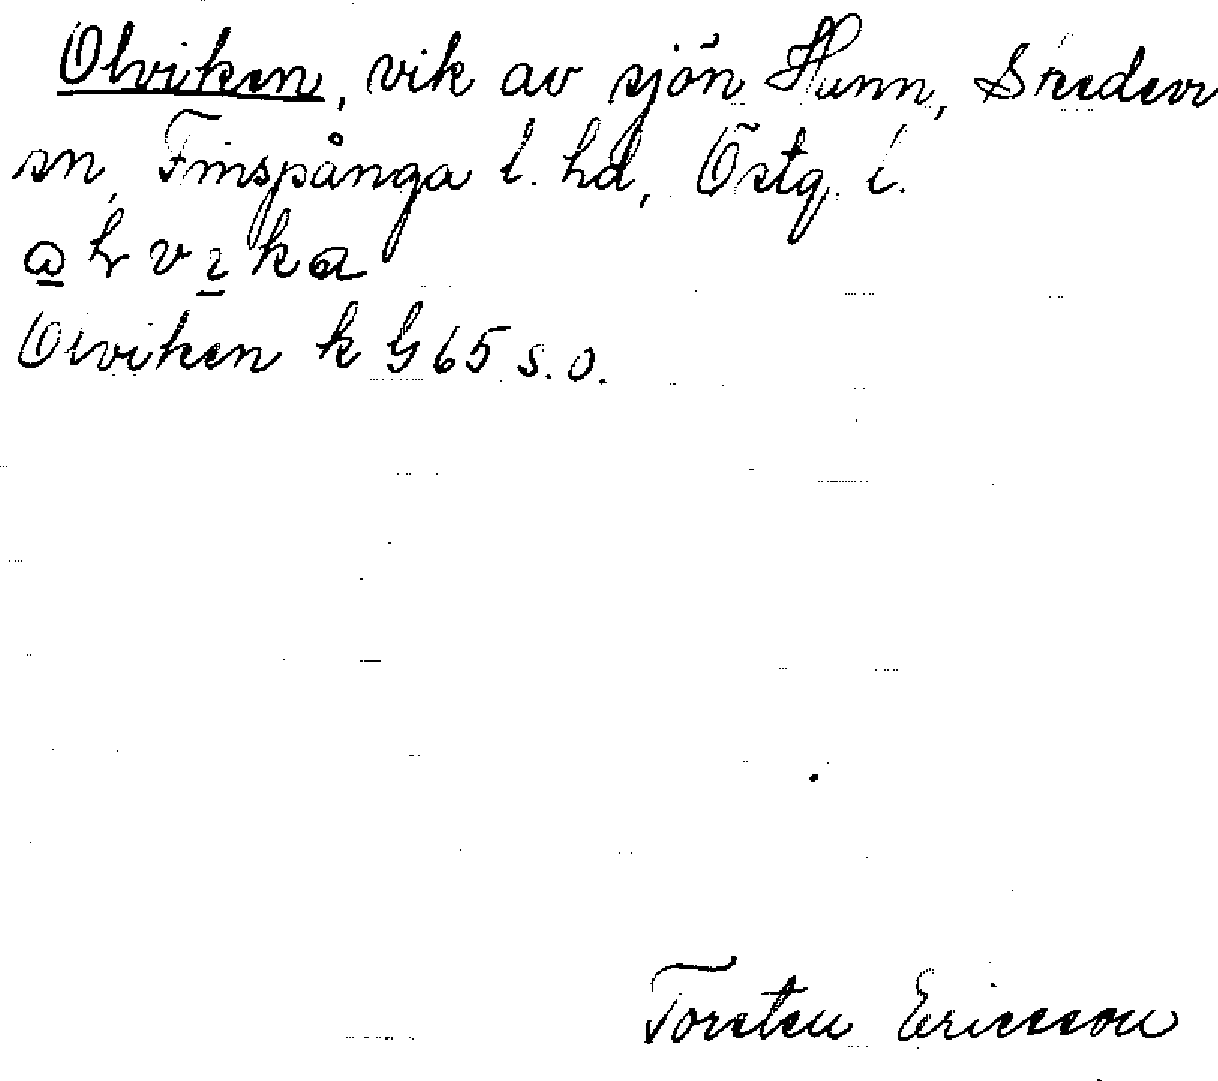 Olviken, vik av sjön Hunn, Skedevi
sn, Finspånga l. hd, Östg. l.
Olviken k G 65 s.o.
Torsten Ericsson